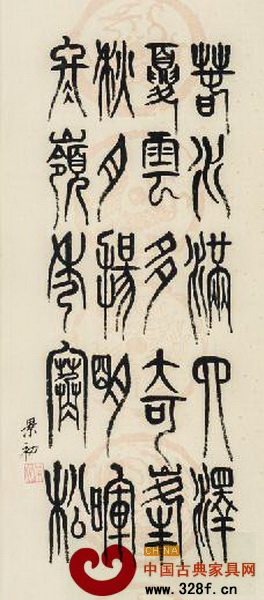 春水滿四澤
夏雲多奇峯
秋月揚明暉
冬嶺秀寒松
景初
CHINA
中国古典家具网
www.328f.cn